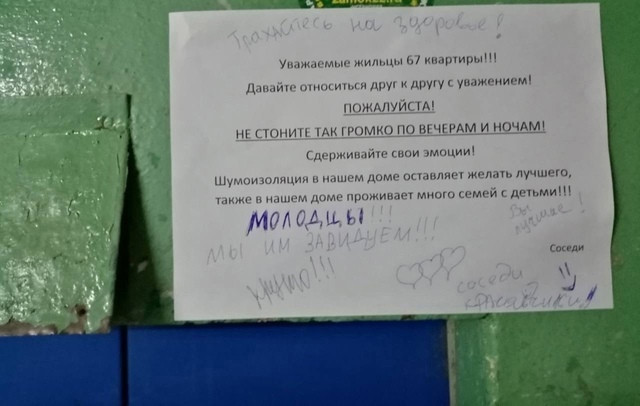 Трахайтесь на здоровье!
Уважаемые жильцы 67 квартиры!!!
Давайте относиться друг к другу с уважением!
ПОЖАЛУЙСТА!
НЕ СТОНИТЕ ТАК ГРОМКО ПО ВЕЧЕРАМ И НОЧАМ!
Сдерживайте свои эмоции!
Шумоизоляция в нашем доме оставляет желать лучшего,
также в нашем доме проживает много семей с детьми!!!
МОЛОДЦЫ!!!
Вы
лучшие!
МЫ ИМ ЗАВИДУЕМ!!!
Соседи
круто!!!
соседи